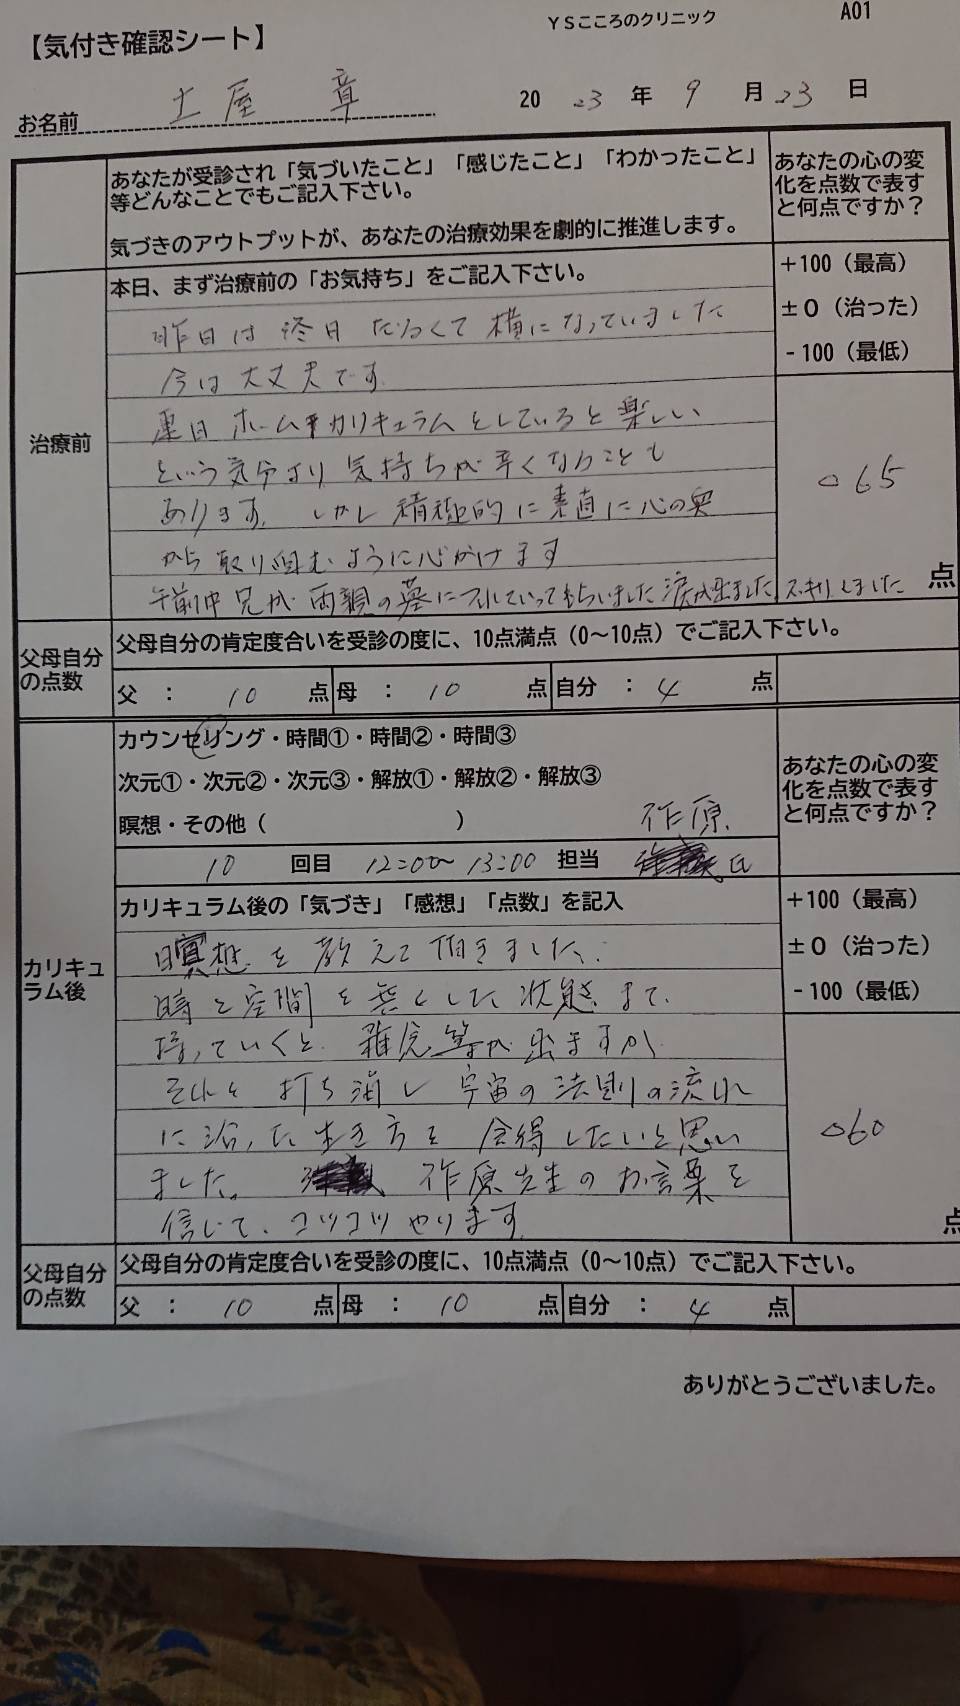 YSこころのクリニック
A01
【気付き確認シート】
お名前 土屋 章 2023年9月23日
あなたが受診され「気づいたこと」「感じたこと」「わかったこと」
等どんなことでもご記入下さい。
気づきのアウトプットが、あなたの治療効果を劇的に推進します。
あなたの心の変
化を点数で表す
と何点ですか？
治療前
本日、まず治療前の「お気持ち」をご記入下さい。
+100（最高）
±0（治った）
-100（最低）
昨日は終日だるくて横になっていました
今は大丈夫です
連日ホームカリキュラムをしていると楽しい
という気分より気持ちが辛くなることも
あります。しかし積極的に素直に心の奥
から取り組むように心がけます
午前中兄が両親の墓につれていってもらいました涙が出ました。スッキリしました
065
点
父母自分
の点数
父母自分の肯定度合いを受診の度に、10点満点（0～10点）でご記入下さい。
父：10点 母：10点 自分：4点
カリキュ
ラム後
カウンセリング・時間①・時間②・時間③
次元①・次元②・次元③・解放①・解放②・解放③
瞑想・その他（ ）
あなたの心の変
化を点数で表す
と何点ですか？
10回目 12:00～13:00 担当 祚原氏
カリキュラム後の「気づき」「感想」「点数」を記入
+100（最高）
±0（治った）
-100（最低）
瞑想を教えて頂きました。
時と空間を無くした状態まで
持っていくと、雑念等が出ますが
それを打ち消し宇宙の法則の流れ
に沿った生き方を会得したいと思い
ました。祚原先生のお言葉を
信じて、コツコツやります
060
点
父母自分
の点数
父母自分の肯定度合いを受診の度に、10点満点（0～10点）でご記入下さい。
父：10点 母：10点 自分：4点
ありがとうございました。